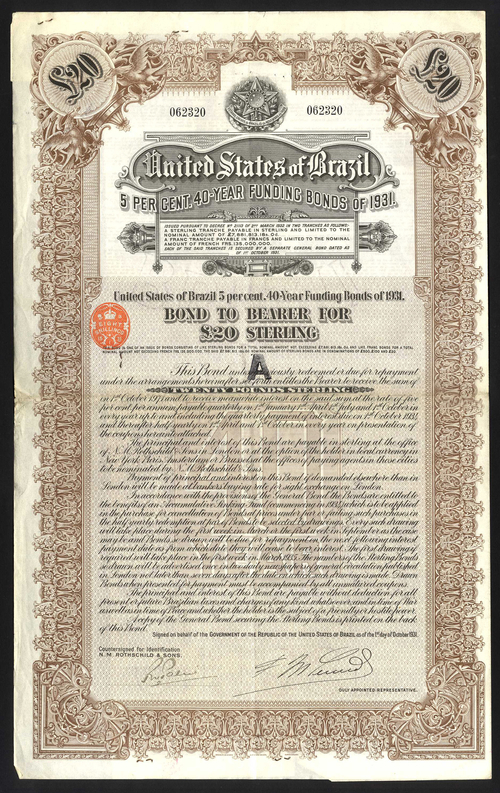 £20
£20
062320
062320
United States of Brazil
5 PER CENT. 40-YEAR FUNDING BONDS OF 1931.
ISSUED PURSUANT TO DECREE Nº 21113 OF 2ND MARCH 1932 IN TWO TRANCHES AS FOLLOWS:
A STERLING TRANCHE PAYABLE IN STERLING AND LIMITED TO THE
NOMINAL AMOUNT OF
A FRANC TRANCHE PAYABLE IN FRANCS AND LIMITED TO THE NOMINAL
AMOUNT OF FRENCH FRS.
EACH OF THE SAID TRANCHES IS SECURED BY A SEPARATE GENERAL BOND DATED AS
OF 1ST OCTOBER 1931.
United States of Brazil 5 per cent. 40-Year Funding Bonds of 1931.
BOND TO BEARER FOR
£20 STERLING
EIGHT
SHILLINGS
A
This Bond unless previously redeemed or due for repayment
under the arrangements hereinafter set forth entitles the Bearer to receive the sum of
TWENTY POUNDS STERLING
on 1st October 1971 and to receive meanwhile interest on the said sum at the rate of five
per cent per annum payable quarterly on 1st January 1st April 1st July and 1st October in
every year up to and including the quarterly payment of interest due on 1st October 1934
and thereafter half yearly on 1st April and 1st October in every year on presentation of
the coupons hereto attached.
The principal and interest of this Bond are payable in sterling at the office
of N. M. Rothschild & Sons in London or at the option of the holder in local currency in
New York Paris Amsterdam or Brussels at the offices of agents in these cities
to be nominated by N. M. Rothschild & Sons.
Payment of principal and interest on this Bond if demanded elsewhere than in
London will be made at bankers buying rate for sight exchange on London.
In accordance with the provisions of the General Bond the Bonds are entitled to
the benefits of an Accumulative Sinking Fund commencing in
in the purchase for cancellation of Bonds at prices under par or failing such purchases in
the half yearly redemption at par of Bonds to be selected by drawings. Every such drawing
will take place during the first week in March or the first week in September as the case
may be and Bonds so drawn will be due for repayment on the next following interest
payment date as from which date they will cease to bear interest. The first drawing if
required will take place in the first week in March 1935. The numbers of the Sterling Bonds
so drawn will be advertised once in two daily newspapers of general circulation published
in London not later than seven days after the date on which such drawing is made. Drawn
Bonds when presented for payment must be accompanied by all unmatured coupons.
The principal and interest of this Bond are payable without deduction for all
present or future Brazilian taxes and charges of any kind whatsoever and in time of War
as well as in time of Peace and whether the holder is the subject of a friendly or hostile power.
A copy of the General Bond securing the Sterling Bonds is printed on the back
of this Bond.
Signed on behalf of the GOVERNMENT OF THE REPUBLIC OF THE UNITED STATES OF BRAZIL as of the 1st day of October 1931.
Countersigned for identification
N. M. ROTHSCHILD & SONS.
DULY APPOINTED REPRESENTATIVE.